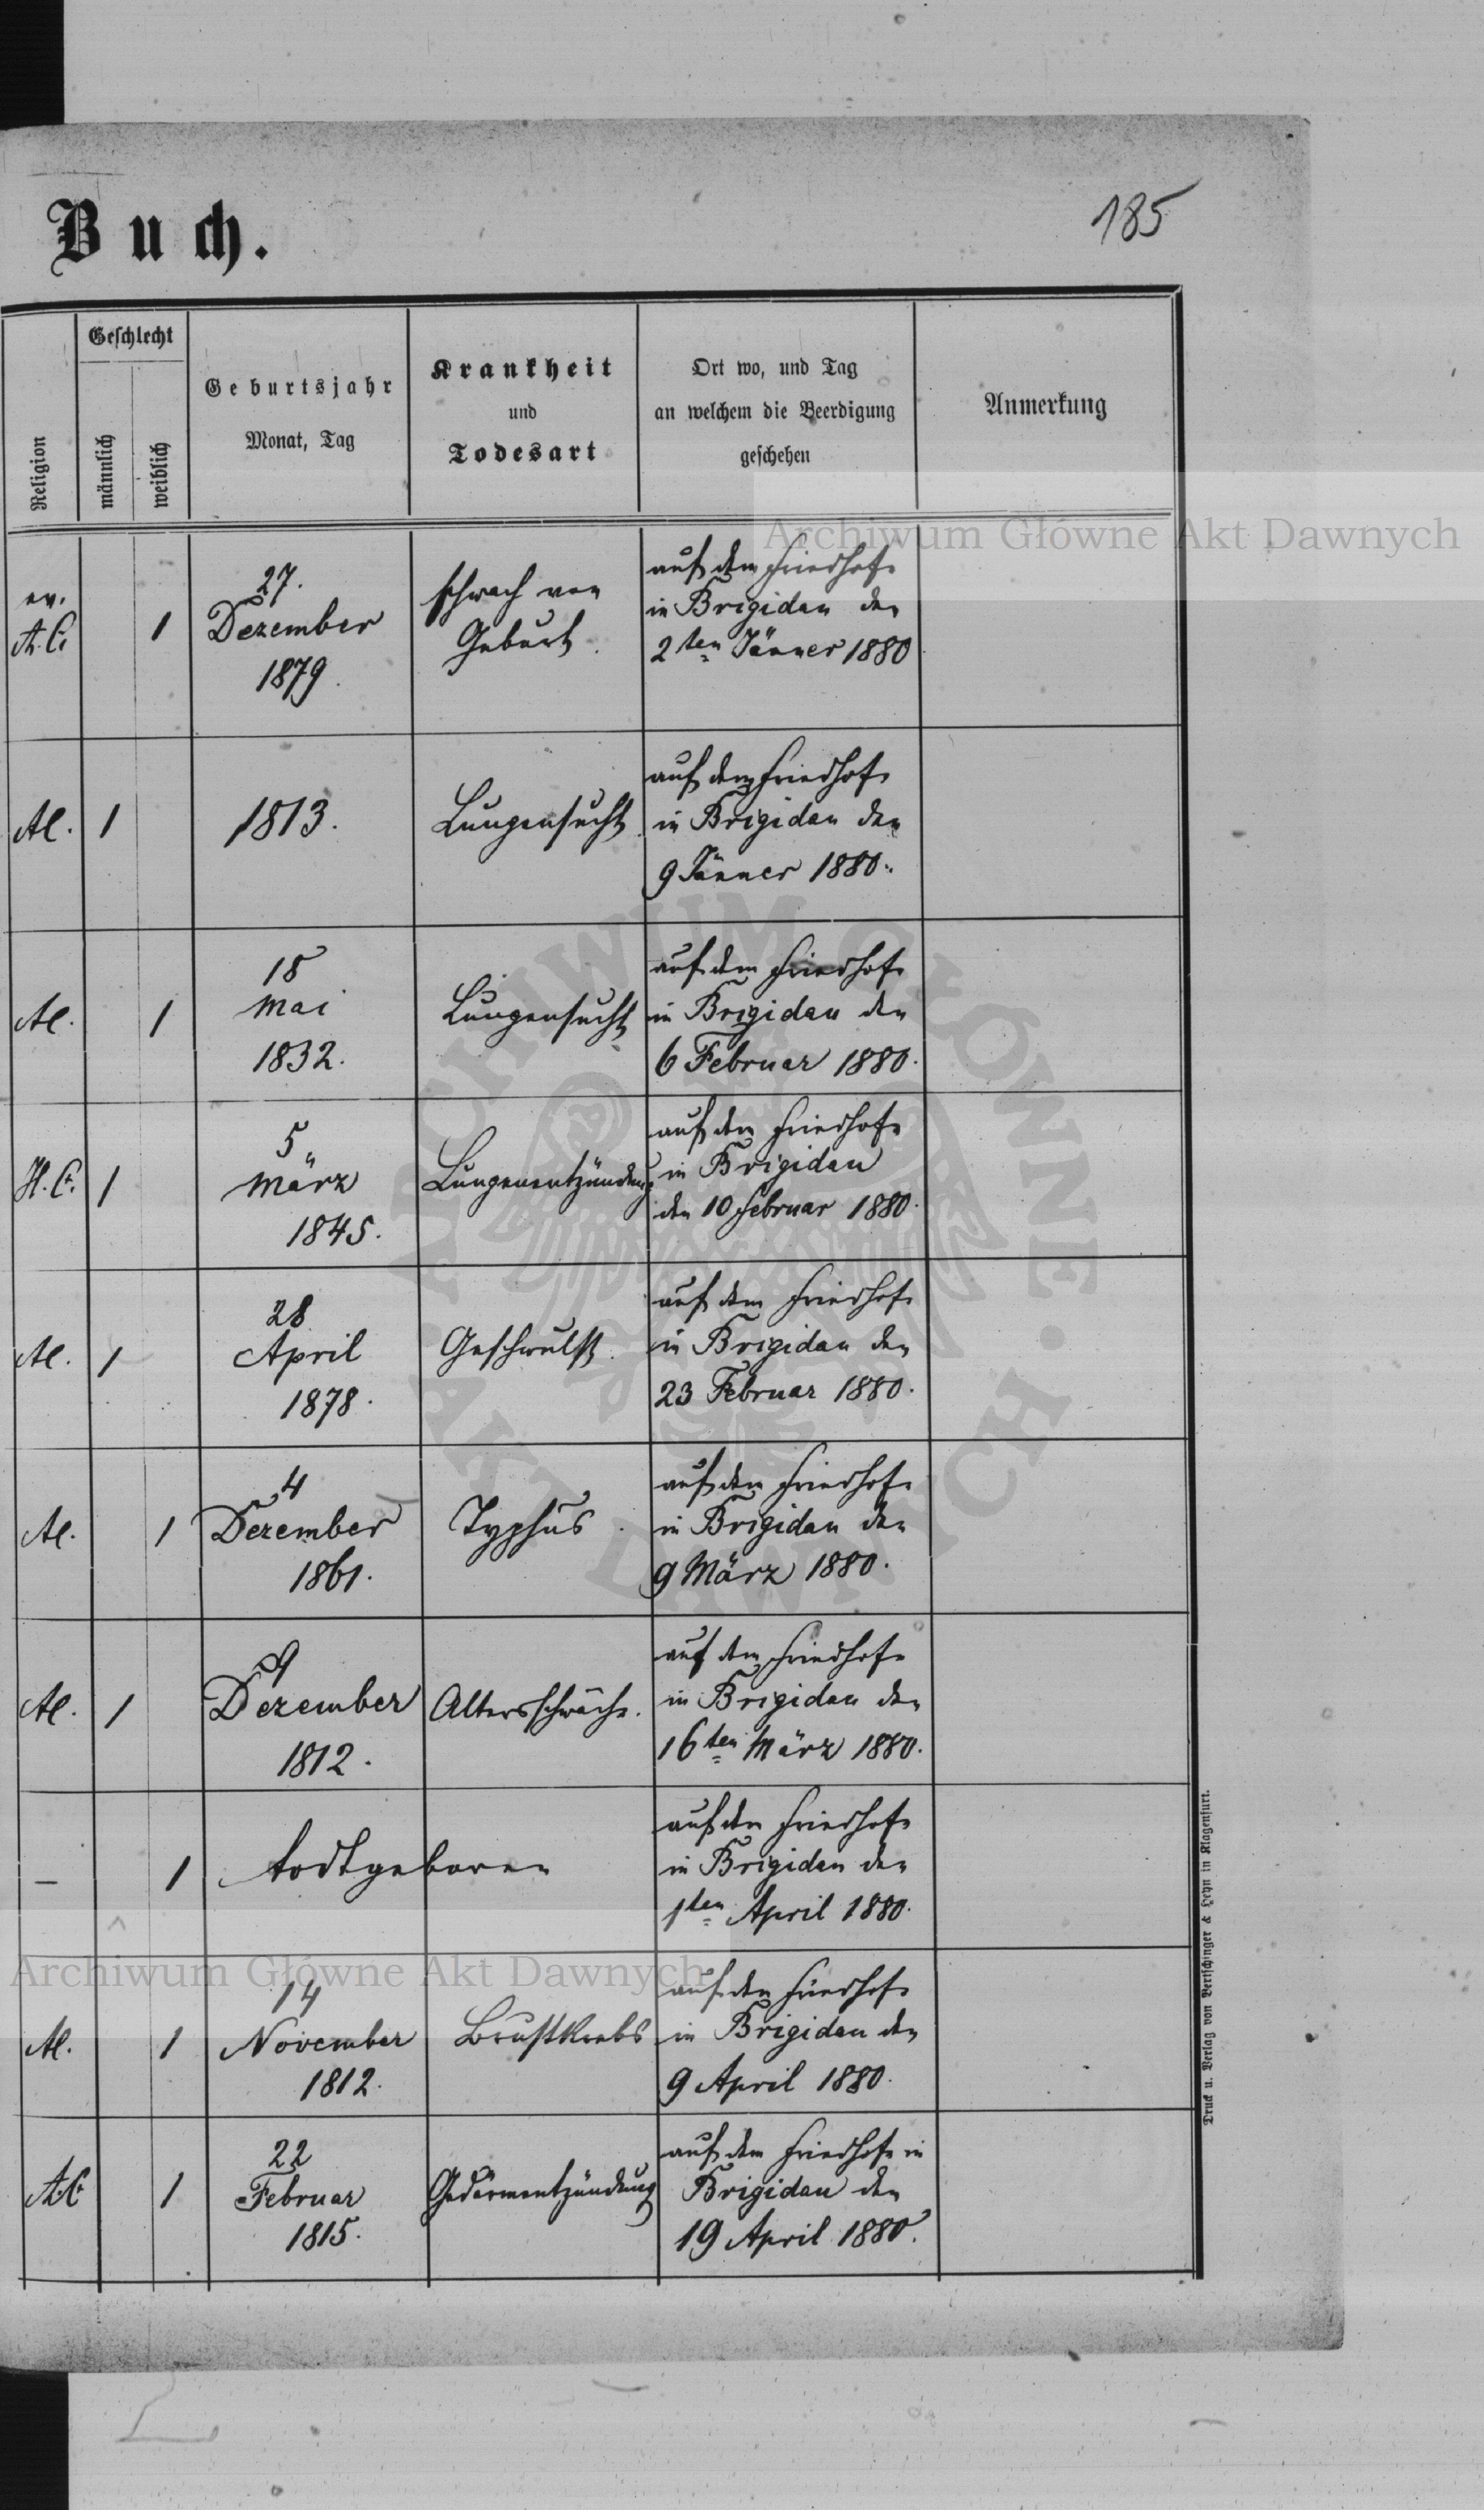 Buch.
185
Religion
Geschlecht
männlich
weiblich
Geburtsjahr
Monat, Tag
Krankheit
und
Todesart
Ort wo, und Tag
an welchem die Beerdigung
geschehen
Anmerkung
Archiwum Główne Akt Dawnych
ev.
A. C.
1
27.
Dezember
1879.
schwach von
Geburt.
auf dem Friedhofe
in Brigidau den
2ten Jänner 1880
1
1813.
Lungensucht
auf dem Friedhofe
in Brigidau den
9 Jänner 1880.
1
18
Mai
1832.
Lungensucht
auf dem Friedhofe
in Brigidau den
6 Februar 1880.
H. C.
1
5
März
1845.
Lungenentzündung
auf dem Friedhofe
in Brigidau
den 10 Februar 1880.
1
28
April
1878.
Geschwulst.
auf dem Friedhofe
in Brigidau den
23 Februar 1880.
1
4
Dezember
1861.
Typhus.
auf dem Friedhofe
in Brigidau den
9 März 1880.
1
9
Dezember
1812.
Altersschwäche.
auf dem Friedhofe
in Brigidau den
16ten März 1880.
–
1
todtgeboren
auf dem Friedhofe
in Brigidau den
1ten April 1880.
1
14
November
1812.
Brustkrebs
auf dem Friedhofe
in Brigidau den
9 April 1880.
A. C.
1
22
Februar
1815.
Gedärmentzündung
auf dem Friedhofe in
Brigidau den
19 April 1880.
Druck u. Verlag von Bertschinger & Heyn in Klagenfurt.
ARCHIWUM GŁÓWNE • AKT DAWNYCH •
Archiwum Główne Akt Dawnych